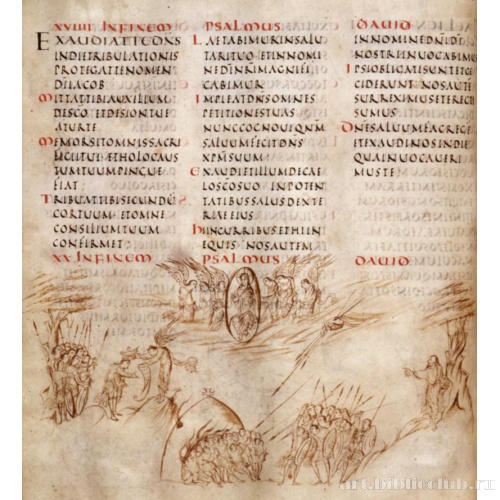 XVIIII INFINEM PSALMUS DAVID
EXAUDIATTEDNS
INDIETRIBULATIONIS
PROTEGATTENOMEN
DIIACOB
MITTATTIBIAUXILIUM
DESCO ETDESIONTUE
ATURTE
MEMORSITOMNISSACRI
FICIITUIETHOLOCAUS
TUMTUUMPINGUE
FIAT
TRIBUATTIBISECUNDU
CORTUUM ETOMNE
CONSILIUMTUUM
CONFIRMET
LAETABIMURINSALU
TARITUO ETINNOMI
NEDINRIMAGNIFI
CABIMUR
IMPLEATDNSOMNES
PETITIONESTUAS
NUNCCOGNOUIQNM
SALUUMFECITDNS
XPMSUUM
EXAUDIETILLUMDECAE
LOSCOSUO INPOTEN
TATIBUSSALUSDEXTE
RAEEIUS
HIINCURRIBUSETHIIN
EQUIS NOSAUTEM
INNOMINEDNIDI
NOSTRIINUOCABIMUS
IPSIOBLIGATISUNTETCE
CIDERUNT NOSAUTE
SURREXIMUSETERECTI
SUMUS
DNESALUUMFACREGE
ETEXAUDINOSINDIE
QUAINUOCAUERI
MUSTE
XX INFINEM PSALMUS DAVID
art.biblioclub.ru